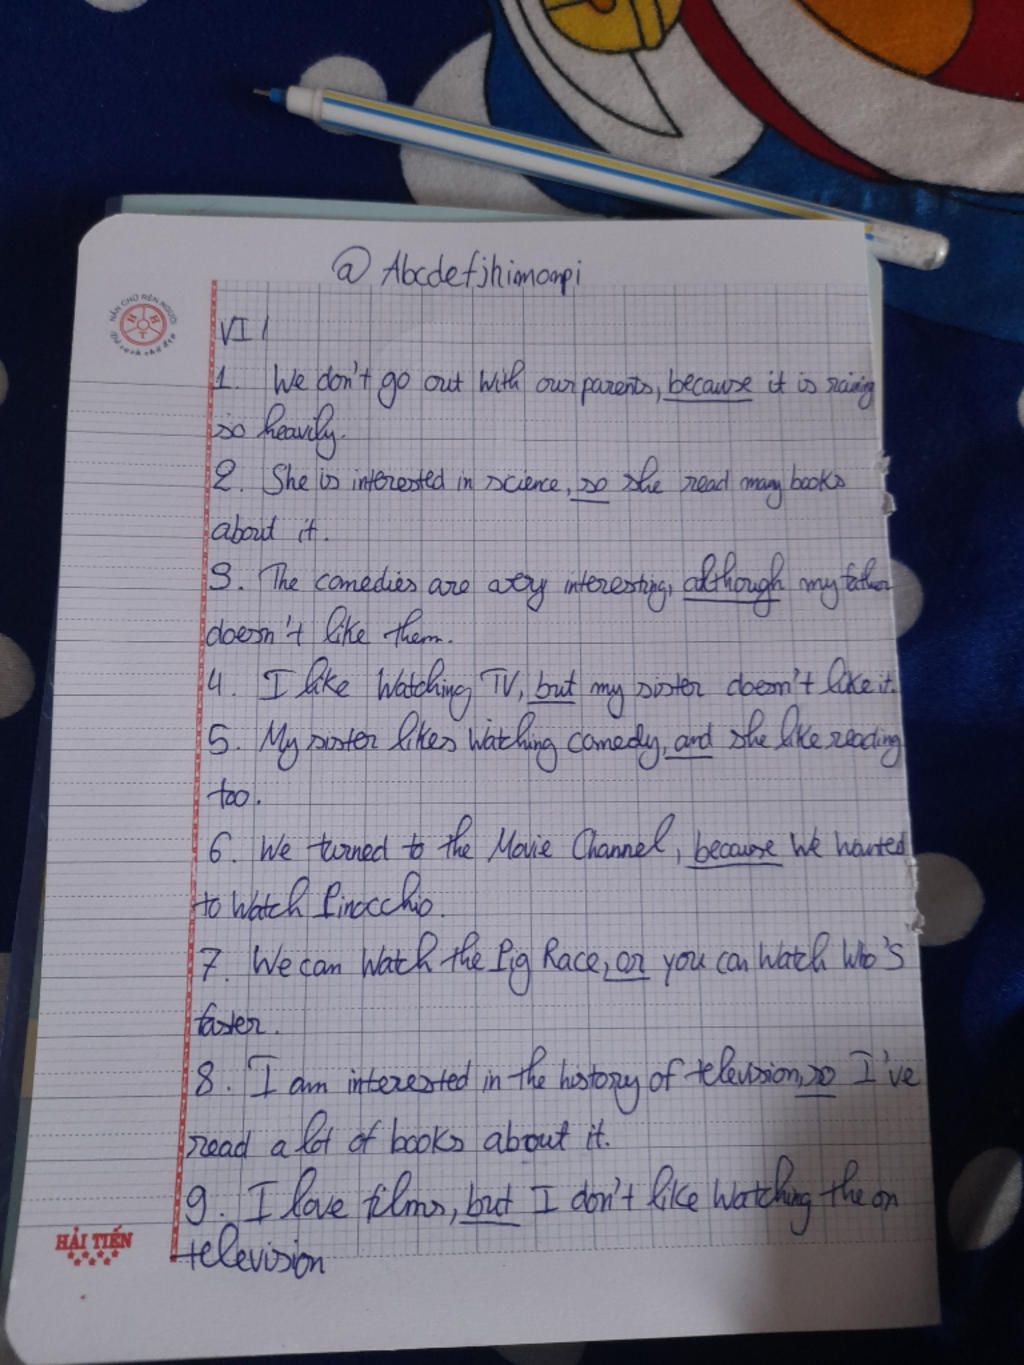 @ Abcdefjhimompi
NẮN CHỮ RÈN NGƯỜI
VI /
1. We don't go out with our parents, because it is raining
so heavily.
2. She is interested in science, so she read many books
about it.
3. The comedies are very interesting, although my father
doesn't like them.
4. I like watching TV, but my sister doesn't like it.
5. My sister likes watching comedy, and she like reading
too.
6. We turned to the Movie Channel, because we wanted
to watch Pinocchio.
7. We can watch the Pig Race, or you can watch Who's
faster.
8. I am interested in the history of television, so I've
read a lot of books about it.
9. I love films, but I don't like watching the on
television
HẢI TIẾN